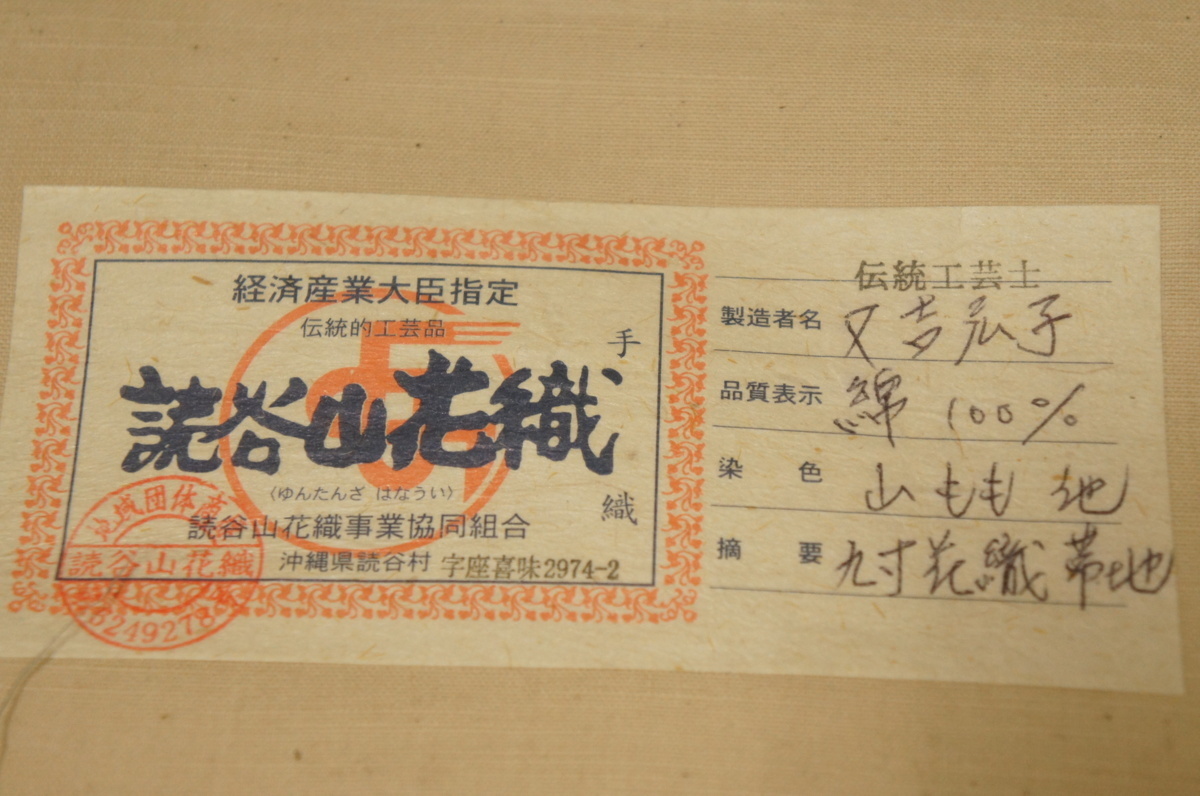 経済産業大臣指定
伝統的工芸品
読谷山花織
手織
〈ゆんたんざ はなうい〉
読谷山花織事業協同組合
沖縄県読谷村 字座喜味2974-2
地域団体商
読谷山花織
5249278
伝統工芸士
製造者名 又吉弘子
品質表示 綿 100%
染色 山もも 地
摘要 九寸花織帯地